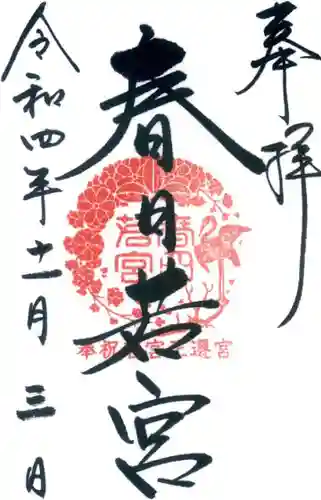 奉拝
春日若宮
春日若宮
奉祝若宮正遷宮
令和四年十一月三日